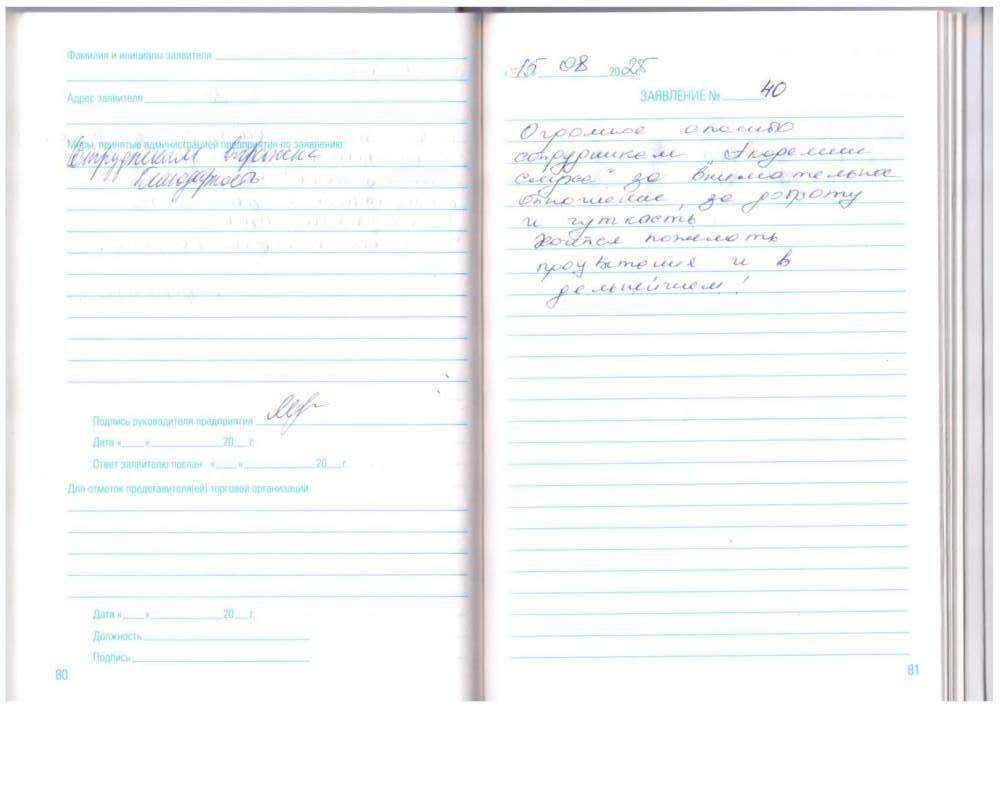 Фамилия и инициалы заявителя
Адрес заявителя
Меры, принятые администрацией предприятия по заявлению:
Сотрудникам
благодарность
Подпись руководителя предприятия
Дата «___» ___ 20__ г.
Ответ заявителю послан «___» ___ 20__ г.
Для отметок представителя(ей) торговой организации
Дата «___» ___ 20__ г.
Должность
Подпись
80
15 08 2025
ЗАЯВЛЕНИЕ № 40
Огромное спасибо
сотрудникам "Академии
слуха" за внимательное
отношение, за доброту
и чуткость
Хочется пожелать
процветания и в
дальнейшем!
81